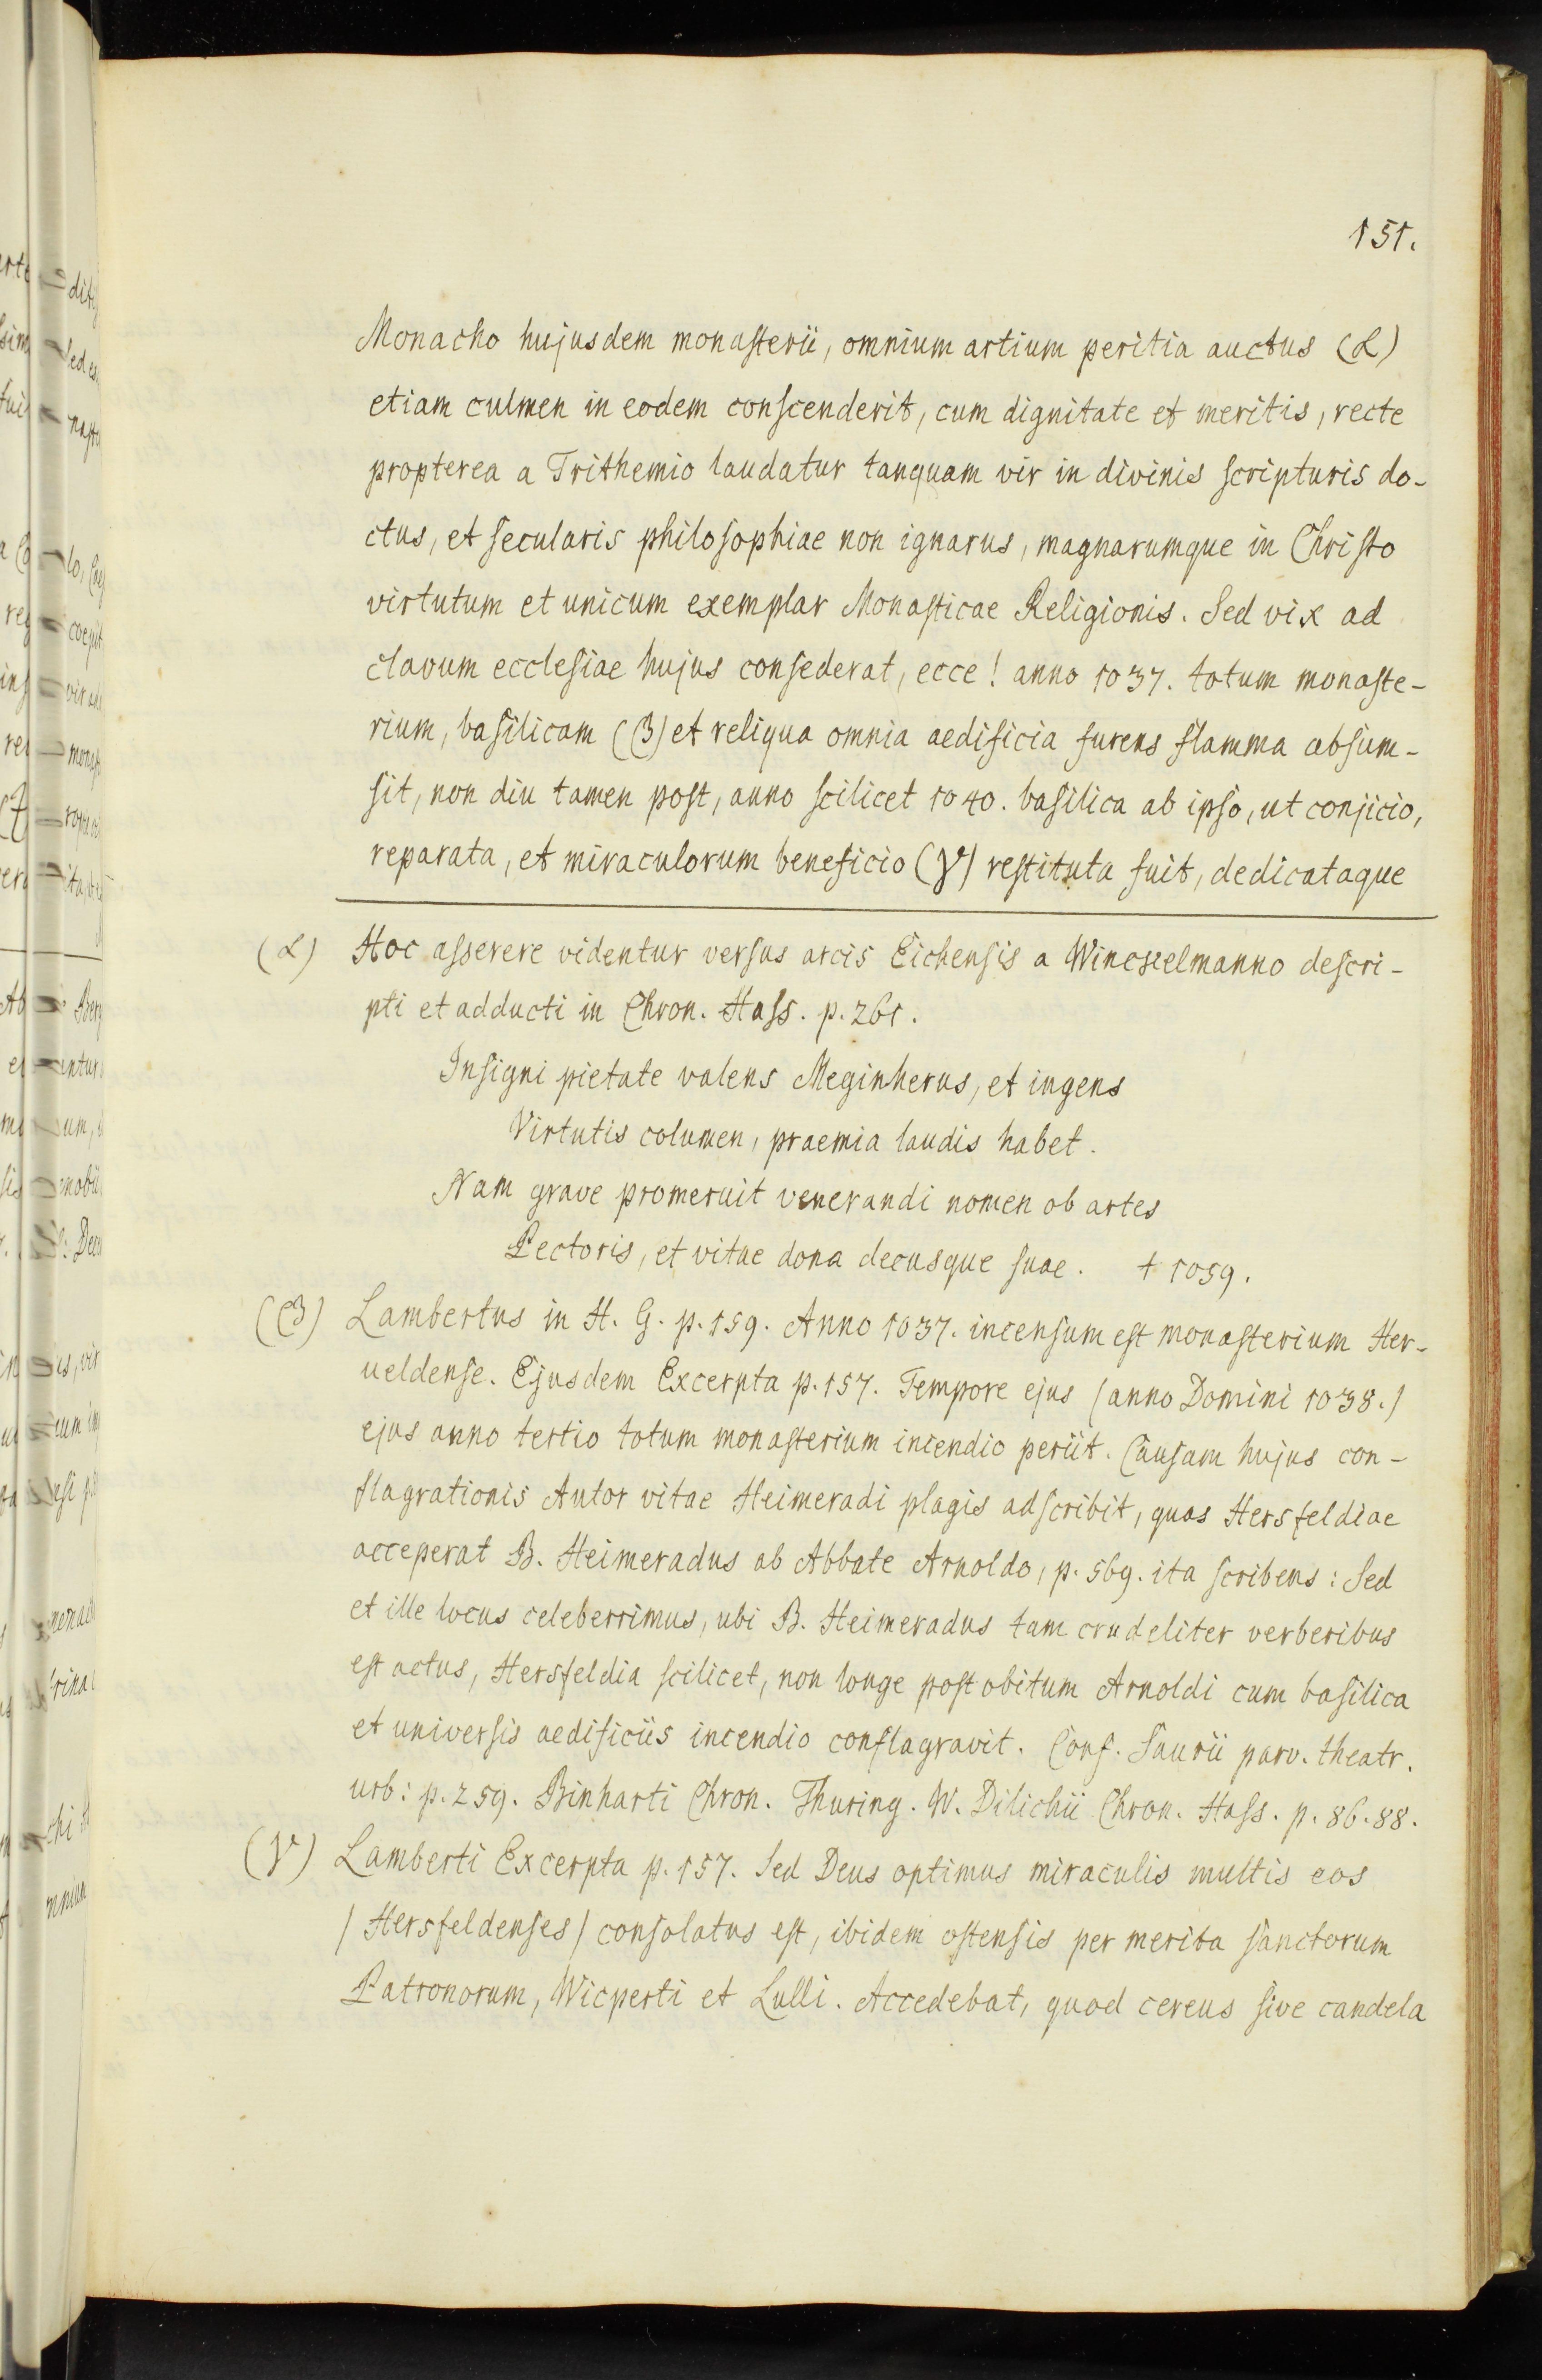 151.
Monacho hujusdem monasterii, omnium artium peritia auctus (α)
etiam culmen in eodem conscenderit, cum dignitate et meritis, recte
propterea a Trithemio laudatur tanquam vir in divinis scripturis do-
ctus, et secularis philosophiae non ignarus, magnarumque in Christo
virtutum et unicum exemplar Monasticae Religionis. Sed vix ad
clavum ecclesiae hujus consederat, ecce! anno 1037. totum monaste-
rium, basilicam (β) et reliqua omnia aedificia furens flamma absum-
sit, non diu tamen post, anno scilicet 1040. basilica ab ipso, ut conjicio,
reparata, et miraculorum beneficio (γ) restituta fuit, dedicataque
(α) Hoc asserere videntur versus arcis Eichensis a Winckelmanno descri-
pti et adducti in Chron. Hass. p. 261.
Insigni pietate valens Meginherus, et ingens
Virtutis columen, praemia laudis habet.
Nam grave promeruit venerandi nomen ob artes
Pectoris, et vitae dona decusque suae. † 1059.
(β) Lambertus in H. G. p. 159. Anno 1037. incensum est monasterium Her-
ueldense. Ejusdem Excerpta p. 157. Tempore ejus /anno Domini 1038./
ejus anno tertio totum monasterium incendio periit. Causam hujus con-
flagrationis Autor vitae Heimeradi plagis adscribit, quas Hersfeldiae
acceperat B. Heimeradus ab Abbate Arnoldo, p. 569. ita scribens: Sed
et ille locus celeberrimus, ubi B. Heimeradus tam crudeliter verberibus
est actus, Hersfeldia scilicet, non longe post obitum Arnoldi cum basilica
et universis aedificiis incendio conflagravit. Conf. Saurii parv. theatr.
urb: p. 259. Binharti Chron. Thuring. W. Dilichii Chron. Hass. p. 86.88.
(γ) Lamberti Excerpta p. 157. Sed Deus optimus miraculis multis eos
/Hersfeldenses/ consolatus est, ibidem ostensis per merita sanctorum
Patronorum, Wicperti et Lulli. Accedebat, quod cereus sive candela